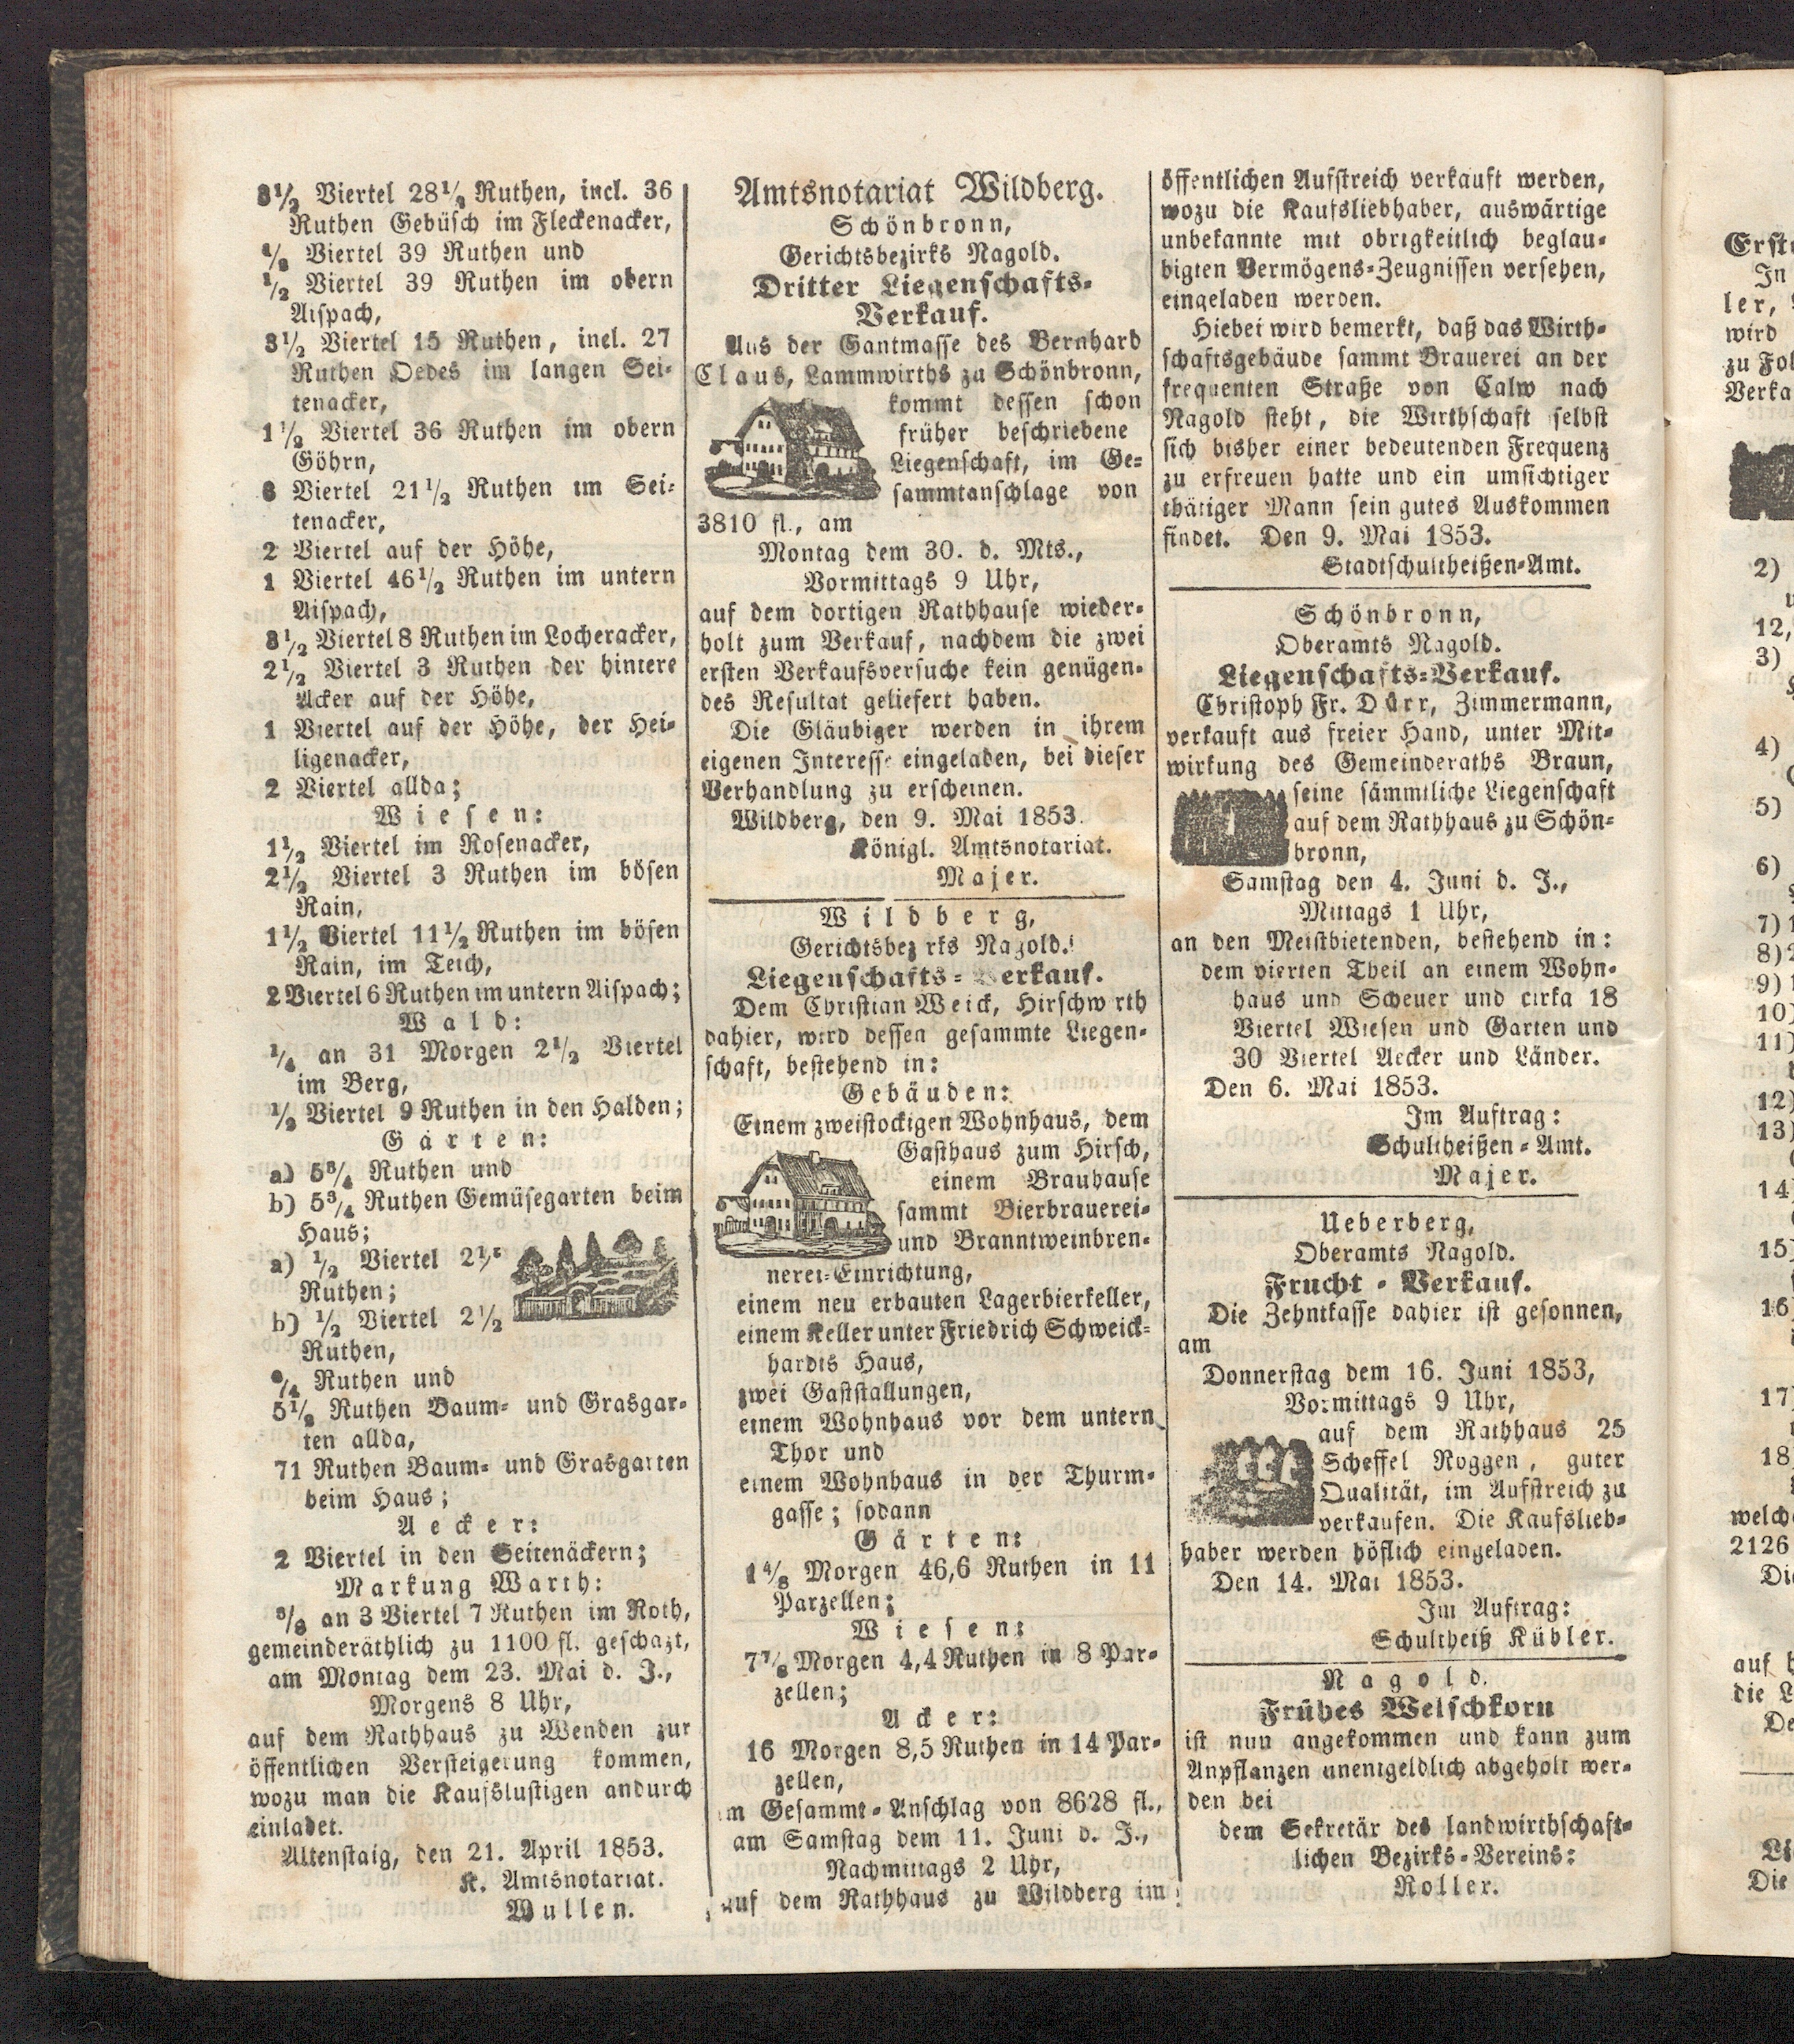 3½ Viertel 28½ Ruthen, incl. 36
Ruthen Gebüsch im Fleckenacker,
½ Viertel 39 Ruthen und
½ Viertel 39 Ruthen im obern
Aispach,
3½ Viertel 15 Ruthen, incl. 27
Ruthen Oedes im langen Sei-
tenacker,
1½ Viertel 36 Ruthen im obern
Göhrn,
3 Viertel 21½ Ruthen im Sei-
tenacker,
2 Viertel auf der Höhe,
1 Viertel 46½ Ruthen im untern
Aispach,
3½ Viertel 8 Ruthen im Locheracker,
2½ Viertel 3 Ruthen der hintere
Acker auf der Höhe,
1 Viertel auf der Höhe, der Hei-
ligenacker,
2 Viertel allda;
Wiesen:
1½ Viertel im Rosenacker,
2½ Viertel 3 Ruthen im bösen
Rain,
1½ Viertel 11½ Ruthen im bösen
Rain, im Teich,
2 Viertel 6 Ruthen im untern Aispach;
Wald:
¼ an 31 Morgen 2½ Viertel
im Berg,
½ Viertel 9 Ruthen in den Halden;
Gärten:
a) 5¾ Ruthen und
b) 5¾ Ruthen Gemüsegarten beim
Haus;
a) ½ Viertel 2½
Ruthen;
b) ½ Viertel 2½
Ruthen,
Ruthen und
5½ Ruthen Baum- und Grasgar-
ten allda,
71 Ruthen Baum- und Grasgarten
beim Haus;
Aecker:
2 Viertel in den Seitenäckern;
Markung Warth:
⅜ an 3 Viertel 7 Ruthen im Roth,
gemeinderäthlich zu 1100 fl. geschazt,
am Montag dem 23. Mai d. J.,
Morgens 8 Uhr,
auf dem Rathhaus zu Wenden zur
öffentlichen Versteigerung kommen,
wozu man die Kaufslustigen andurch
einladet.
Altenstaig, den 21. April 1853.
K. Amtsnotariat.
Wullen.
Amtsnotariat Wildberg.
Schönbronn,
Gerichtsbezirks Nagold.
Dritter Liegenschafts-
Verkauf.
Aus der Gantmasse des Bernhard
Claus, Lammwirths zu Schönbronn,
kommt dessen schon
früher beschriebene
Liegenschaft, im Ge-
sammtanschlage von
3810 fl., am
Montag dem 30. d. Mts.,
Vormittags 9 Uhr,
auf dem dortigen Rathhause wieder-
holt zum Verkauf, nachdem die zwei
ersten Verkaufsversuche kein genügen-
des Resultat geliefert haben.
Die Gläubiger werden in ihrem
eigenen Interesse eingeladen, bei dieser
Verhandlung zu erscheinen.
Wildberg, den 9. Mai 1853.
Königl. Amtsnotariat.
Majer.
Wildberg,
Gerichtsbezirks Nagold.
Liegenschafts-Verkauf.
Dem Christian Weick, Hirschwirth
dahier, wird dessen gesammte Liegen-
schaft, bestehend in:
Gebäuden:
Einem zweistockigen Wohnhaus, dem
Gasthaus zum Hirsch,
einem Brauhause
sammt Bierbrauerei-
und Branntweinbren-
nerei-Einrichtung,
einem neu erbauten Lagerbierkeller,
einem Keller unter Friedrich Schweick-
hardts Haus,
zwei Gaststallungen,
einem Wohnhaus vor dem untern
Thor und
einem Wohnhaus in der Thurm-
gasse; sodann
Gärten:
1⁴⁄₈ Morgen 46,6 Ruthen in 11
Parzellen;
Wiesen:
7⅞ Morgen 4,4 Ruthen in 8 Par-
zellen;
Acker:
16 Morgen 8,5 Ruthen in 14 Par-
zellen,
im Gesammt-Anschlag von 8628 fl.,
am Samstag dem 11. Juni d. J.,
Nachmittags 2 Uhr,
auf dem Rathhaus zu Wildberg im
öffentlichen Aufstreich verkauft werden,
wozu die Kaufsliebhaber, auswärtige
unbekannte mit obrigkeitlich beglau-
bigten Vermögens-Zeugnissen versehen,
eingeladen werden.
Hiebei wird bemerkt, daß das Wirth-
schaftsgebäude sammt Brauerei an der
frequenten Straße von Calw nach
Nagold steht, die Wirthschaft selbst
sich bisher einer bedeutenden Frequenz
zu erfreuen hatte und ein umsichtiger
thätiger Mann sein gutes Auskommen
findet. Den 9. Mai 1853.
Stadtschultheißen-Amt.
Schönbronn,
Oberamts Nagold.
Liegenschafts-Verkauf.
Christoph Fr. Dürr, Zimmermann,
verkauft aus freier Hand, unter Mit-
wirkung des Gemeinderaths Braun,
seine sämmtliche Liegenschaft
auf dem Rathhaus zu Schön-
bronn,
Samstag den 4. Juni d. J.,
Mittags 1 Uhr,
an den Meistbietenden, bestehend in:
dem vierten Theil an einem Wohn-
haus und Scheuer und cirka 18
Viertel Wiesen und Garten und
30 Viertel Aecker und Länder.
Den 6. Mai 1853.
Im Auftrag:
Schultheißen-Amt.
Majer.
Ueberberg,
Oberamts Nagold.
Frucht-Verkauf.
Die Zehntkasse dahier ist gesonnen,
am
Donnerstag dem 16. Juni 1853,
Vormittags 9 Uhr,
auf dem Rathhaus 25
Scheffel Roggen, guter
Qualität, im Aufstreich zu
verkaufen. Die Kaufslieb-
haber werden höflich eingeladen.
Den 14. Mai 1853.
Im Auftrag:
Schultheiß Kübler.
Nagold.
Frühes Welschkorn
ist nun angekommen und kann zum
Anpflanzen unentgeldlich abgeholt wer-
den bei
dem Sekretär des landwirthschaft-
lichen Bezirks-Vereins:
Roller.
In
ler,
wird
2)
12,
3)
4)
5)
6)
7)
8)
9)
10)
11)
12)
13)
14)
15)
16)
17)
18)
2126
auf
die
Die